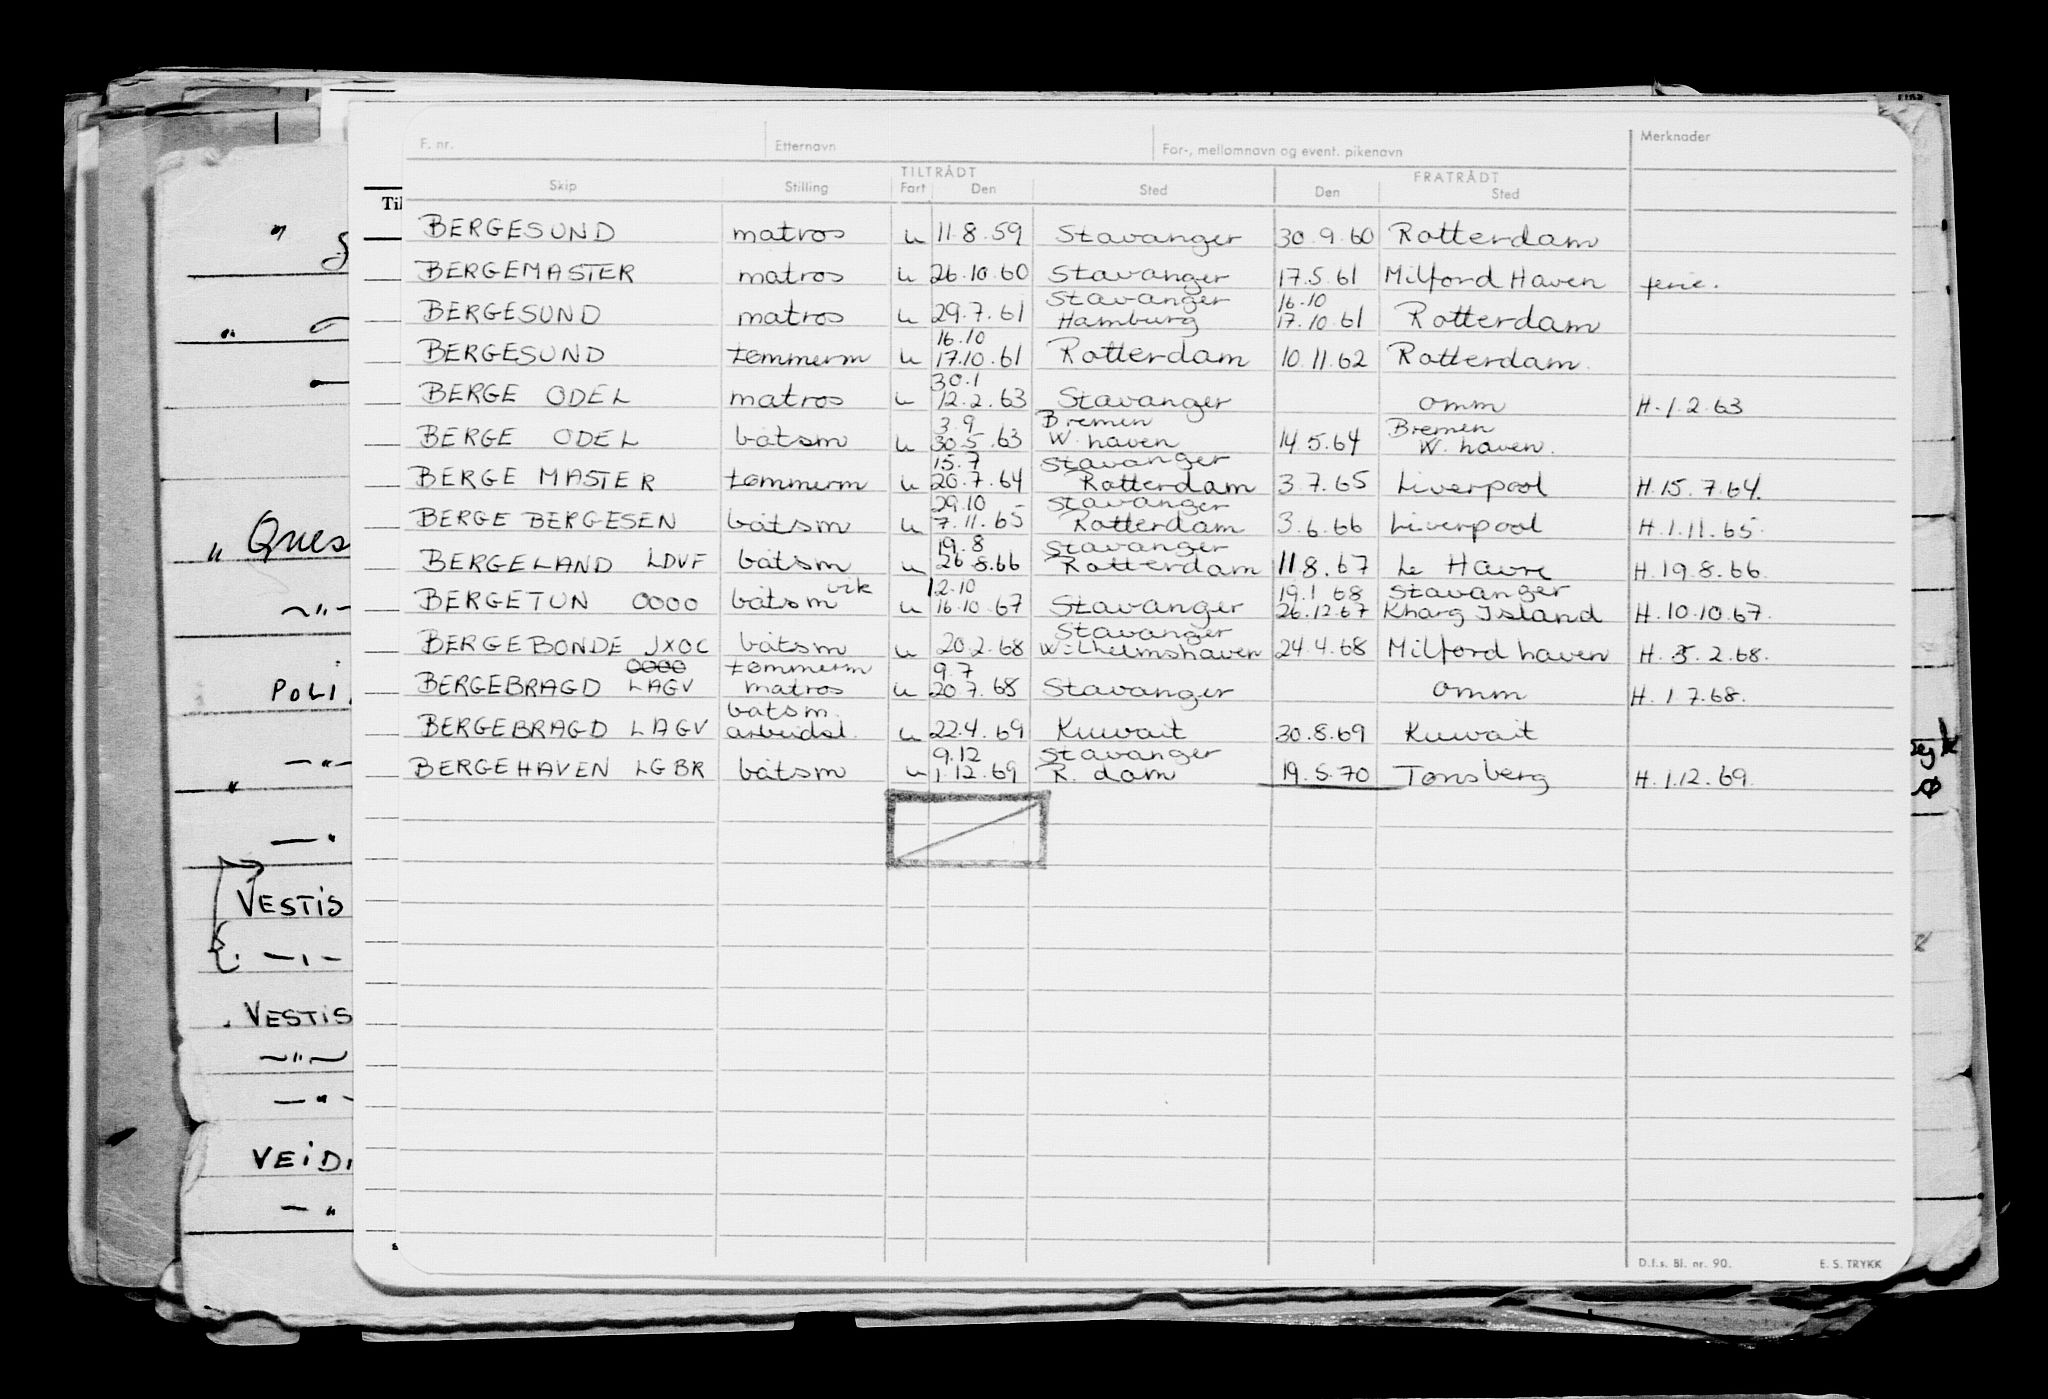 F. nr. Etternavn For-, mellomnavn og event. pikenavn Merknader
TILTRÅDT FRATRÅDT
Skip Stilling Fart Den Sted Den Sted
BERGESUND matros u 11.8.59 Stavanger 30.9.60 Rotterdam
BERGEMASTER matros u 26.10.60 Stavanger 17.5.61 Milford Haven ferie.
Stavanger 16.10
BERGESUND matros u 29.7.61 Hamburg 17.10.61 Rotterdam
16.10
BERGESUND tømmerm u 17.10.61 Rotterdam 10.11.62 Rotterdam
30.1
BERGE ODEL matros u 12.2.63 Stavanger omm H.1.2.63
3.9 Bremen Bremen
BERGE ODEL båtsm u 30.5.63 W. haven 14.5.64 W. haven.
15.7 Stavanger
BERGE MASTER tømmerm u 20.7.64 Rotterdam 3.7.65 Liverpool H.15.7.64.
29.10 Stavanger
BERGE BERGESEN båtsm u 7.11.65 Rotterdam 3.6.66 Liverpool H.1.11.65.
19.8 Stavanger
BERGELAND LDVF båtsm u 26.8.66 Rotterdam 11.8.67 Le Havre H.19.8.66.
vik 12.10 19.1.68 Stavanger
BERGETUN OOOO båtsm u 16.10.67 Stavanger 26.12.67 Kharg Island H.10.10.67.
Stavanger
BERGEBONDE JXOC båtsm u 20.2.68 Wilhelmshaven 24.4.68 Milford haven H.5.2.68.
OOOO tømmerm 9.7
BERGEBRAGD LAGV matros u 20.7.68 Stavanger omm H.1.7.68.
båtsm.
BERGEBRAGD LAGV arbeidsl. u 22.4.69 Kuwait 30.8.69 Kuwait
9.12 Stavanger
BERGEHAVEN LGBR båtsm u 1.12.69 R.dam 19.5.70 Tønsberg H.1.12.69.
D.f.s. Bl. nr. 90. E. S. TRYKK
Til
Ques
POLI
VESTIS
VESTIS
VEIDI